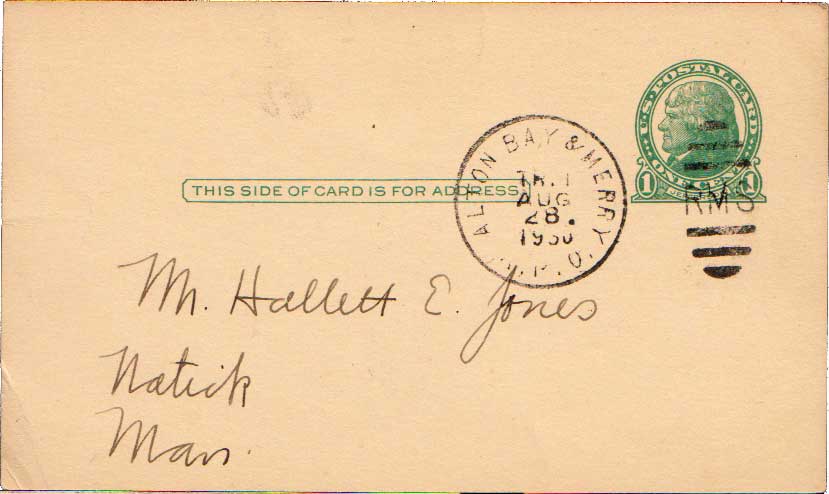 U.S. POSTAL CARD
1 ONE CENT 1
THIS SIDE OF CARD IS FOR ADDRESS
ALTON BAY & MERRY
TR. 1
AUG
28.
1930
RMS
Mr. Hallett E. Jones
Natick
Mass.